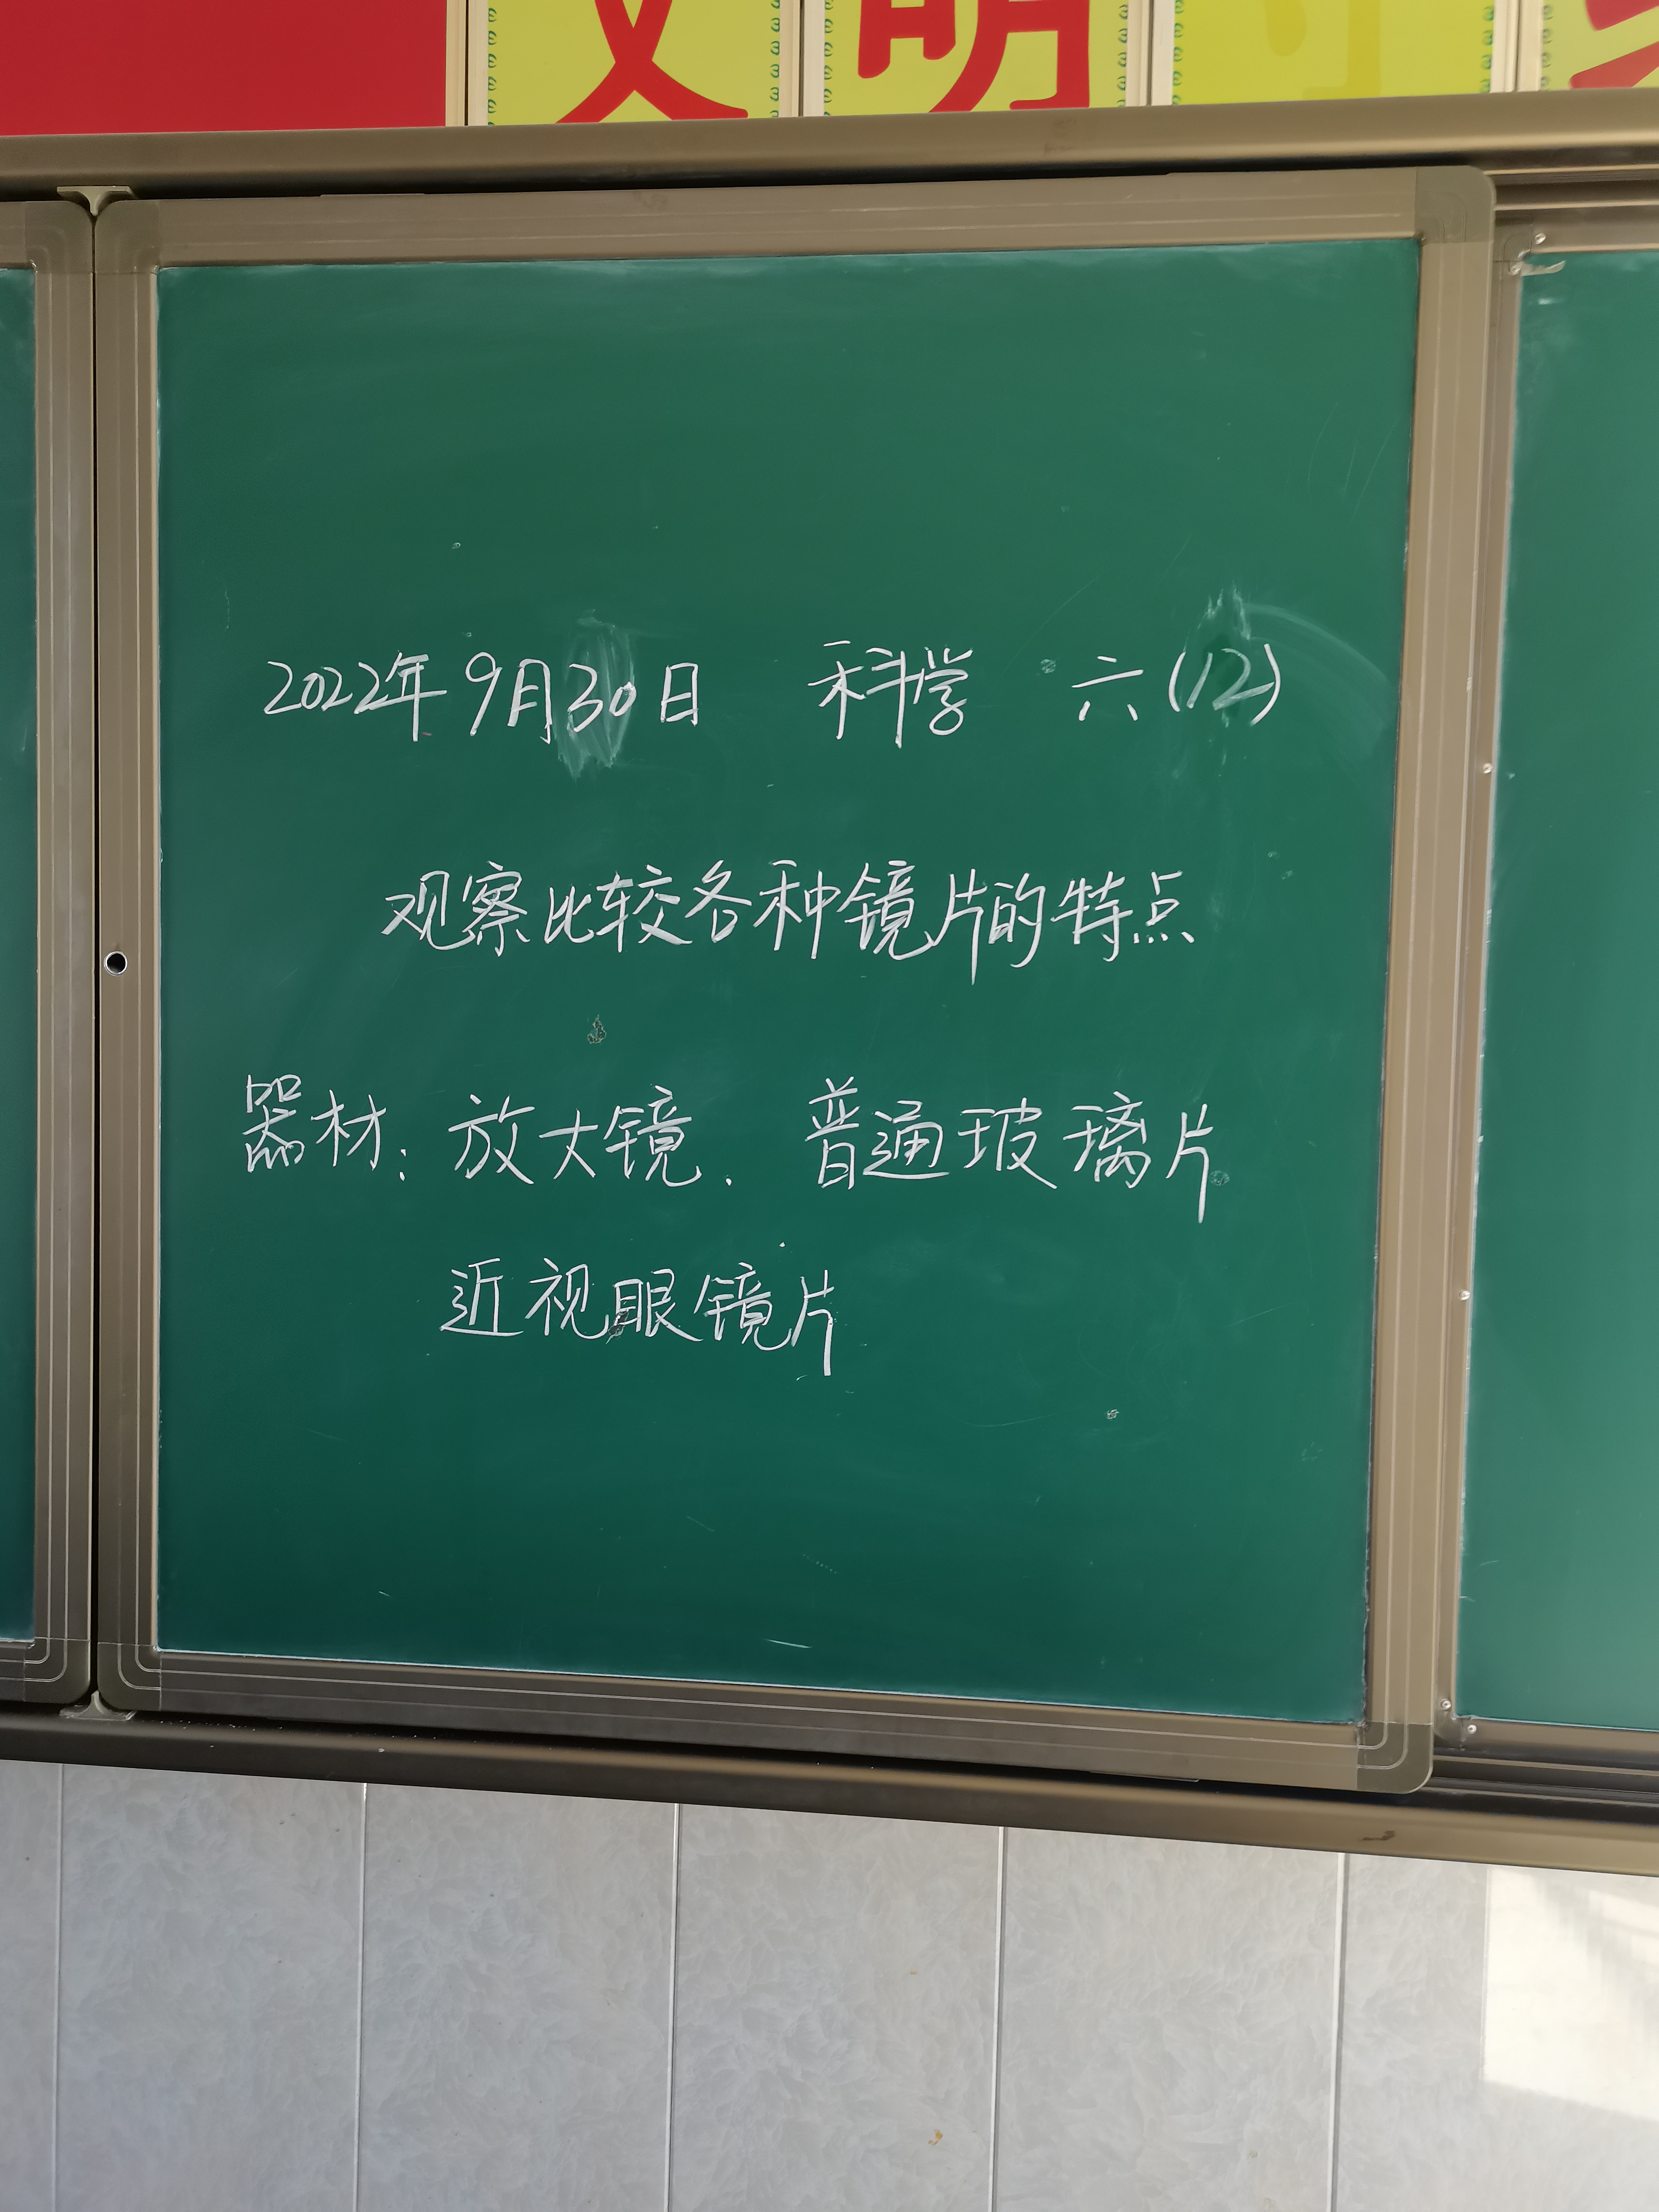 文明
2022年9月30日 科学 六(12)
观察比较各种镜片的特点
器材: 放大镜. 普通玻璃片
近视眼镜片